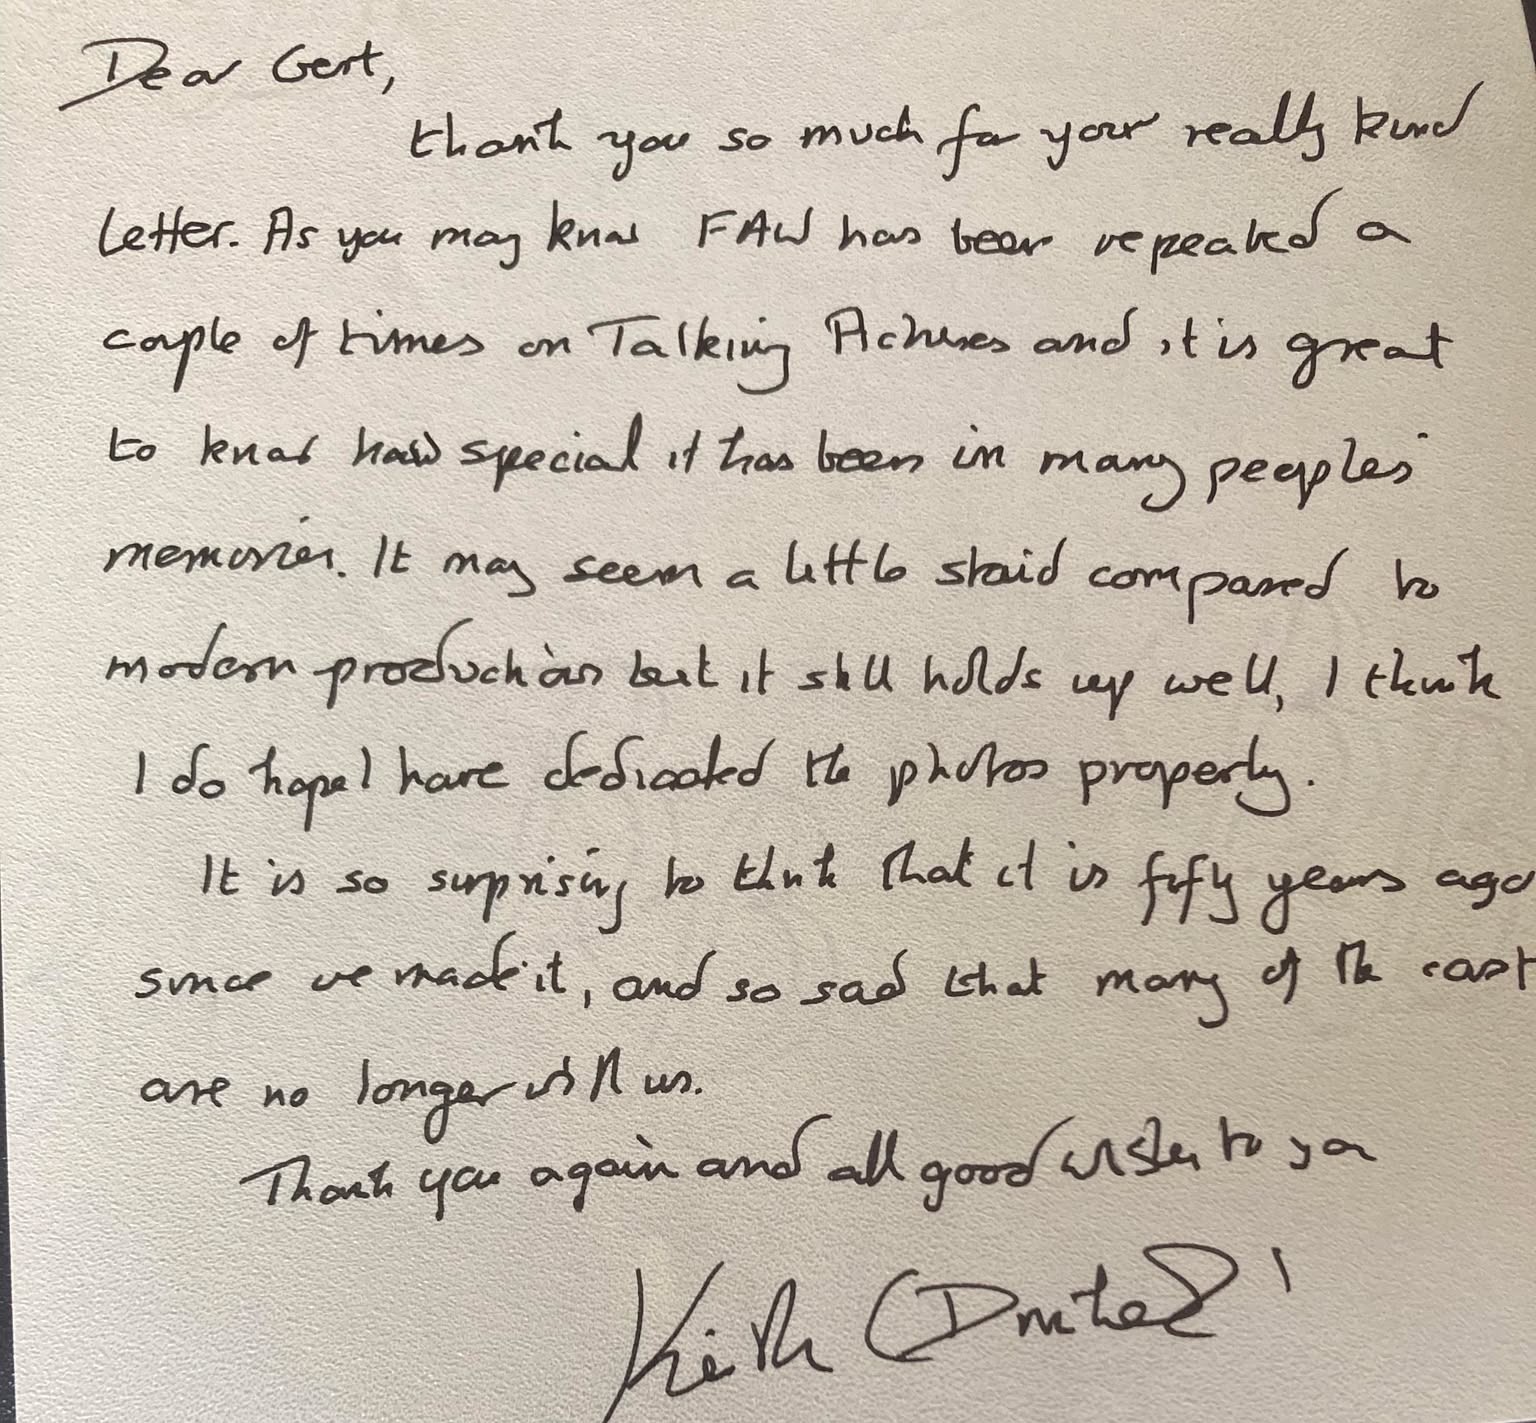 Dear Gert,
thank you so much for your really kind
letter. As you may know FAW has been repeated a
couple of times on Talking Pictures and it is great
to know how special it has been in many peoples'
memories. It may seem a little staid compared to
modern productions but it still holds up well, I think
I do hope I have dedicated the photos properly.
It is so surprising to think that it is fifty years ago
since we made it, and so sad that many of the cast
are no longer with us.
Thank you again and all good wishes to you
Keith (Drinkel)